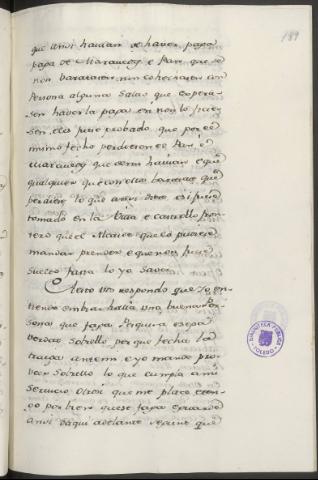 189
que ansi havian de haver papa
papa de Maravedis e Pan que se
non baratasen nin cohechasen con
Persona alguna salvo que espera-
sen haver la papa en non lo ficie-
sen ella fuere probado que por ese
mismo fecho perdiesen el Pan e
Maravedis que demi havian e que
qualquier que con ellos baratase que
perdiese lo que ansi diere e si fuese
tomado en la Villa e Castillo fron-
tero que el Alcaide que lo pudiese
mandar prender e que non fuese
suelto fasta lo yo saver
A esto vos respondo que yo en-
tiendo embiar halla una buena Per-
sona que faga Pesquisa e sepa
verdad sobrello por que fecha la
traiga ante mi e yo mande pro-
veer sobrello lo que cumpla a mi
servicio Otrosi que me place e ten-
go por bien que se faga e guarde
ansi daqui adelante segunt que
BIBLIOTECA
TOLEDO